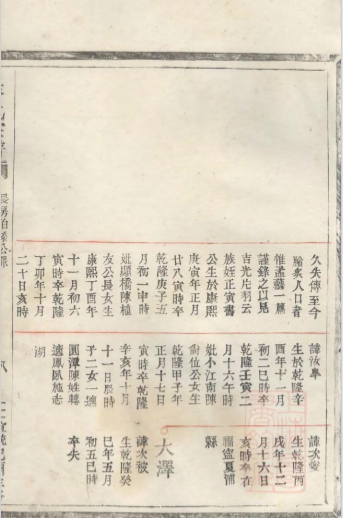 久失傳至今
膾炙人口者
惟孟藝一篇
謹錄之以見
吉光片羽云
族姪正寅書
公生於康熙
庚寅年正月
廿八寅時卒
乾隆庚子五
月初一申時
妣顯橋陳植
友公長女生
康熙丁酉年
十一月初六
寅時卒乾隆
丁卯年十月
二十日亥時
諱汝皋
生於乾隆辛
酉年十一月
初二巳時卒
乾隆壬寅二
月十六午時
妣小江南陳
尚位公女生
乾隆甲子年
正月十七日
寅時卒乾隆
辛亥年十月
十一日辰時
子二女一適
圓潭陳姓轉
適鳳凰施志
湖
諱次
生乾隆丙
戌年十二
月十六日
亥時卒在
福寧夏浦
縣
大澤
諱次被
生乾隆癸
巳年五月
初五巳時
卒失
長房伯公派
八